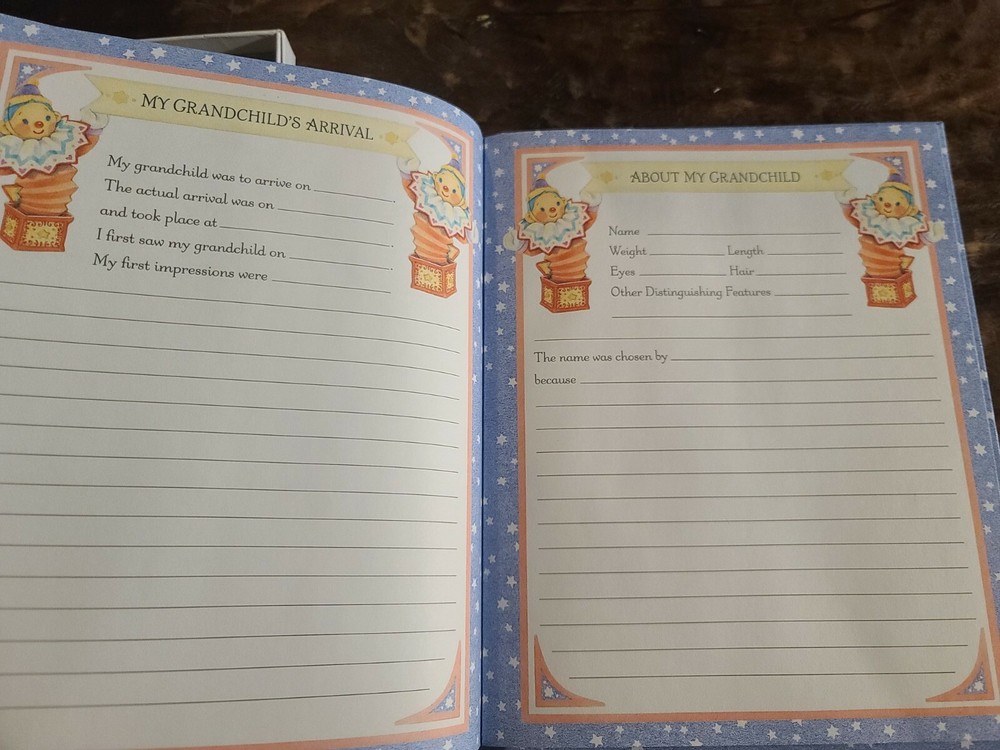 MY GRANDCHILD'S ARRIVAL
My grandchild was to arrive on ____________.
The actual arrival was on ____________
and took place at ____________.
I first saw my grandchild on ____________.
My first impressions were ____________
ABOUT MY GRANDCHILD
Name ____________
Weight ____________ Length ____________
Eyes ____________ Hair ____________
Other Distinguishing Features ____________
The name was chosen by ____________
because ____________